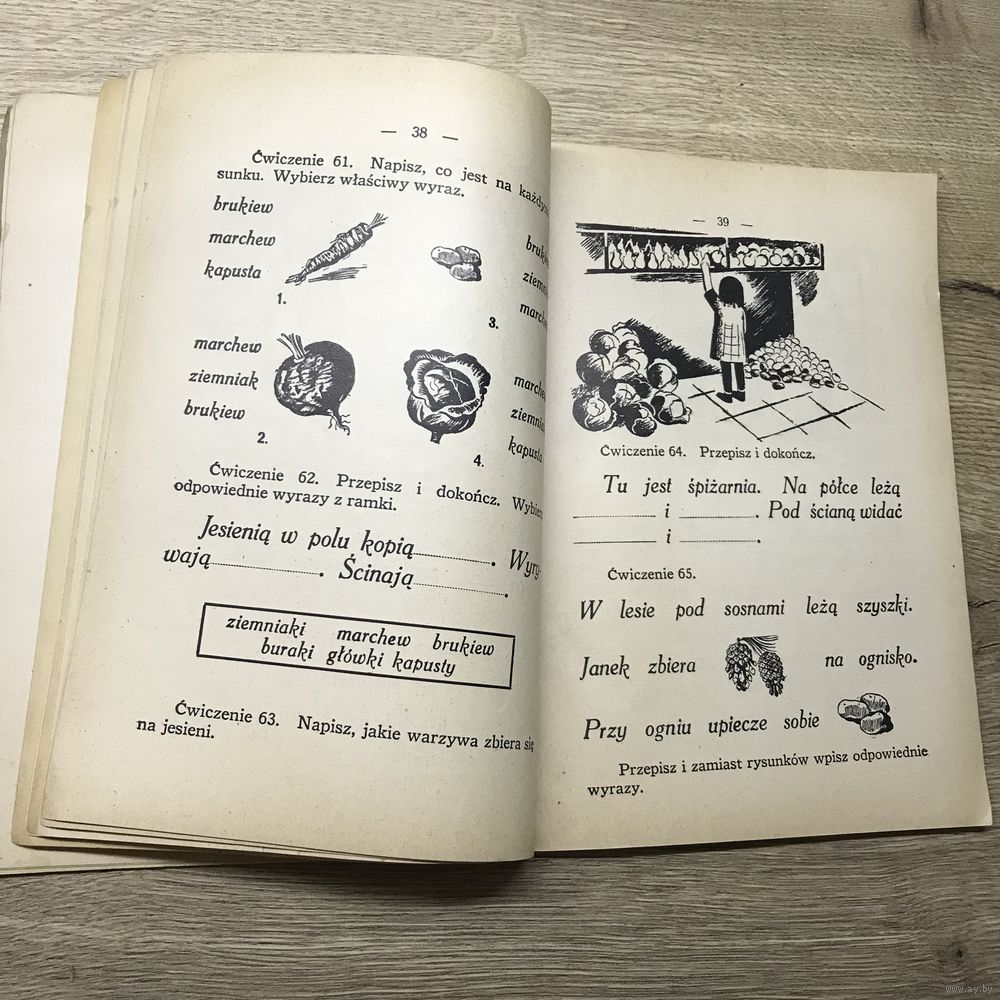 — 38 —
Ćwiczenie 61. Napisz, co jest na każdym
sunku. Wybierz właściwy wyraz.
brukiew
marchew
kapusta
1.
3.
marchew
ziemniak
brukiew
2.
4.
kapusta
Ćwiczenie 62. Przepisz i dokończ. Wybierz
odpowiednie wyrazy z ramki.
Jesienią w polu kopią.......... . Wyry-
wają.......... . Ścinają.......... .
ziemniaki marchew brukiew
buraki główki kapusty
Ćwiczenie 63. Napisz, jakie warzywa zbiera się
na jesieni.
— 39 —
Ćwiczenie 64. Przepisz i dokończ.
Tu jest śpiżarnia. Na półce leżą
.......... i .......... . Pod ścianą widać
.......... i .......... .
Ćwiczenie 65.
W lesie pod sosnami leżą szyszki.
Janek zbiera na ognisko.
Przy ogniu upiecze sobie
Przepisz i zamiast rysunków wpisz odpowiednie
wyrazy.
www.ay.by